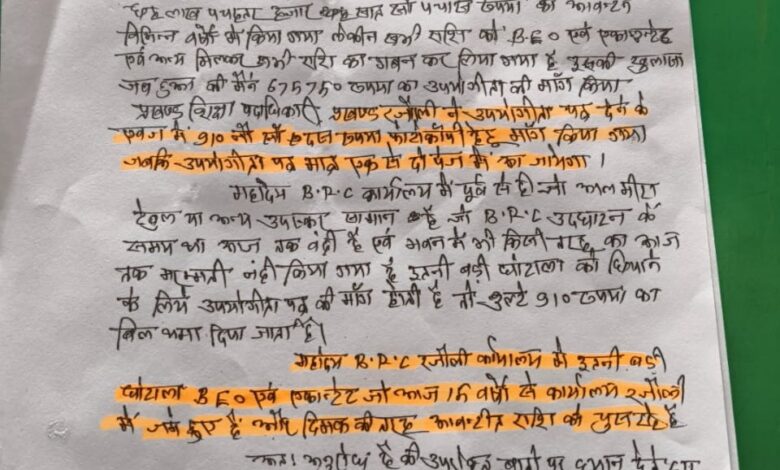 छह लाख पचहत्तर हजार सात सौ पचास रूपया का आवंटन
विभिन्न वर्षो में किया गया लेकीन सभी राशि को B.E.O एवं एकाउन्टेन्ट
एवं अन्य मिलकर सभी राशि का गबन कर लिया गया है इसकी खुलासा
जब हुआ की मैंने 675750 रूपया का उपयोगीता की माँग किया
प्रखण्ड शिक्षा पदाधिकारी, प्रखण्ड रजौली ने उपयोगीता पत्र देने के
एवज में 910 नौ सौ दस रूपया फोटोकॉपी हेतू माँग किया गया
जबकि उपयोगीता पत्र मात्र एक से दो पेज में आ जायेगा ।
महोदय B.R.C कार्यालय में पूर्व से ही जो अलमीरा
टेबुल या अन्य उपस्कर सामान है जो B.R.C उदघाटन के
समय था आज तक वही है एवं भवन में भी किसी तरह का आज
तक मरम्मती नही किया गया है इतनी बड़ी घोटाला को छिपाने
के लिये उपयोगीता पत्र की माँग होती है तो उल्टे 910 रूपया का
बिल थमा दिया जाता है।
महोदय B.R.C रजौली कार्यालय में इतनी बड़ी
घोटाला BEO एवं एकाउन्टेंट जो आज 16 वर्षो से कार्यालय रजौली
में जमे हुए है और दिमक की तरह आवन्टीत राशि को चुस रहे है
अतः अनुरोध है की उपरोक्त बातो पर ध्यान देते हुए